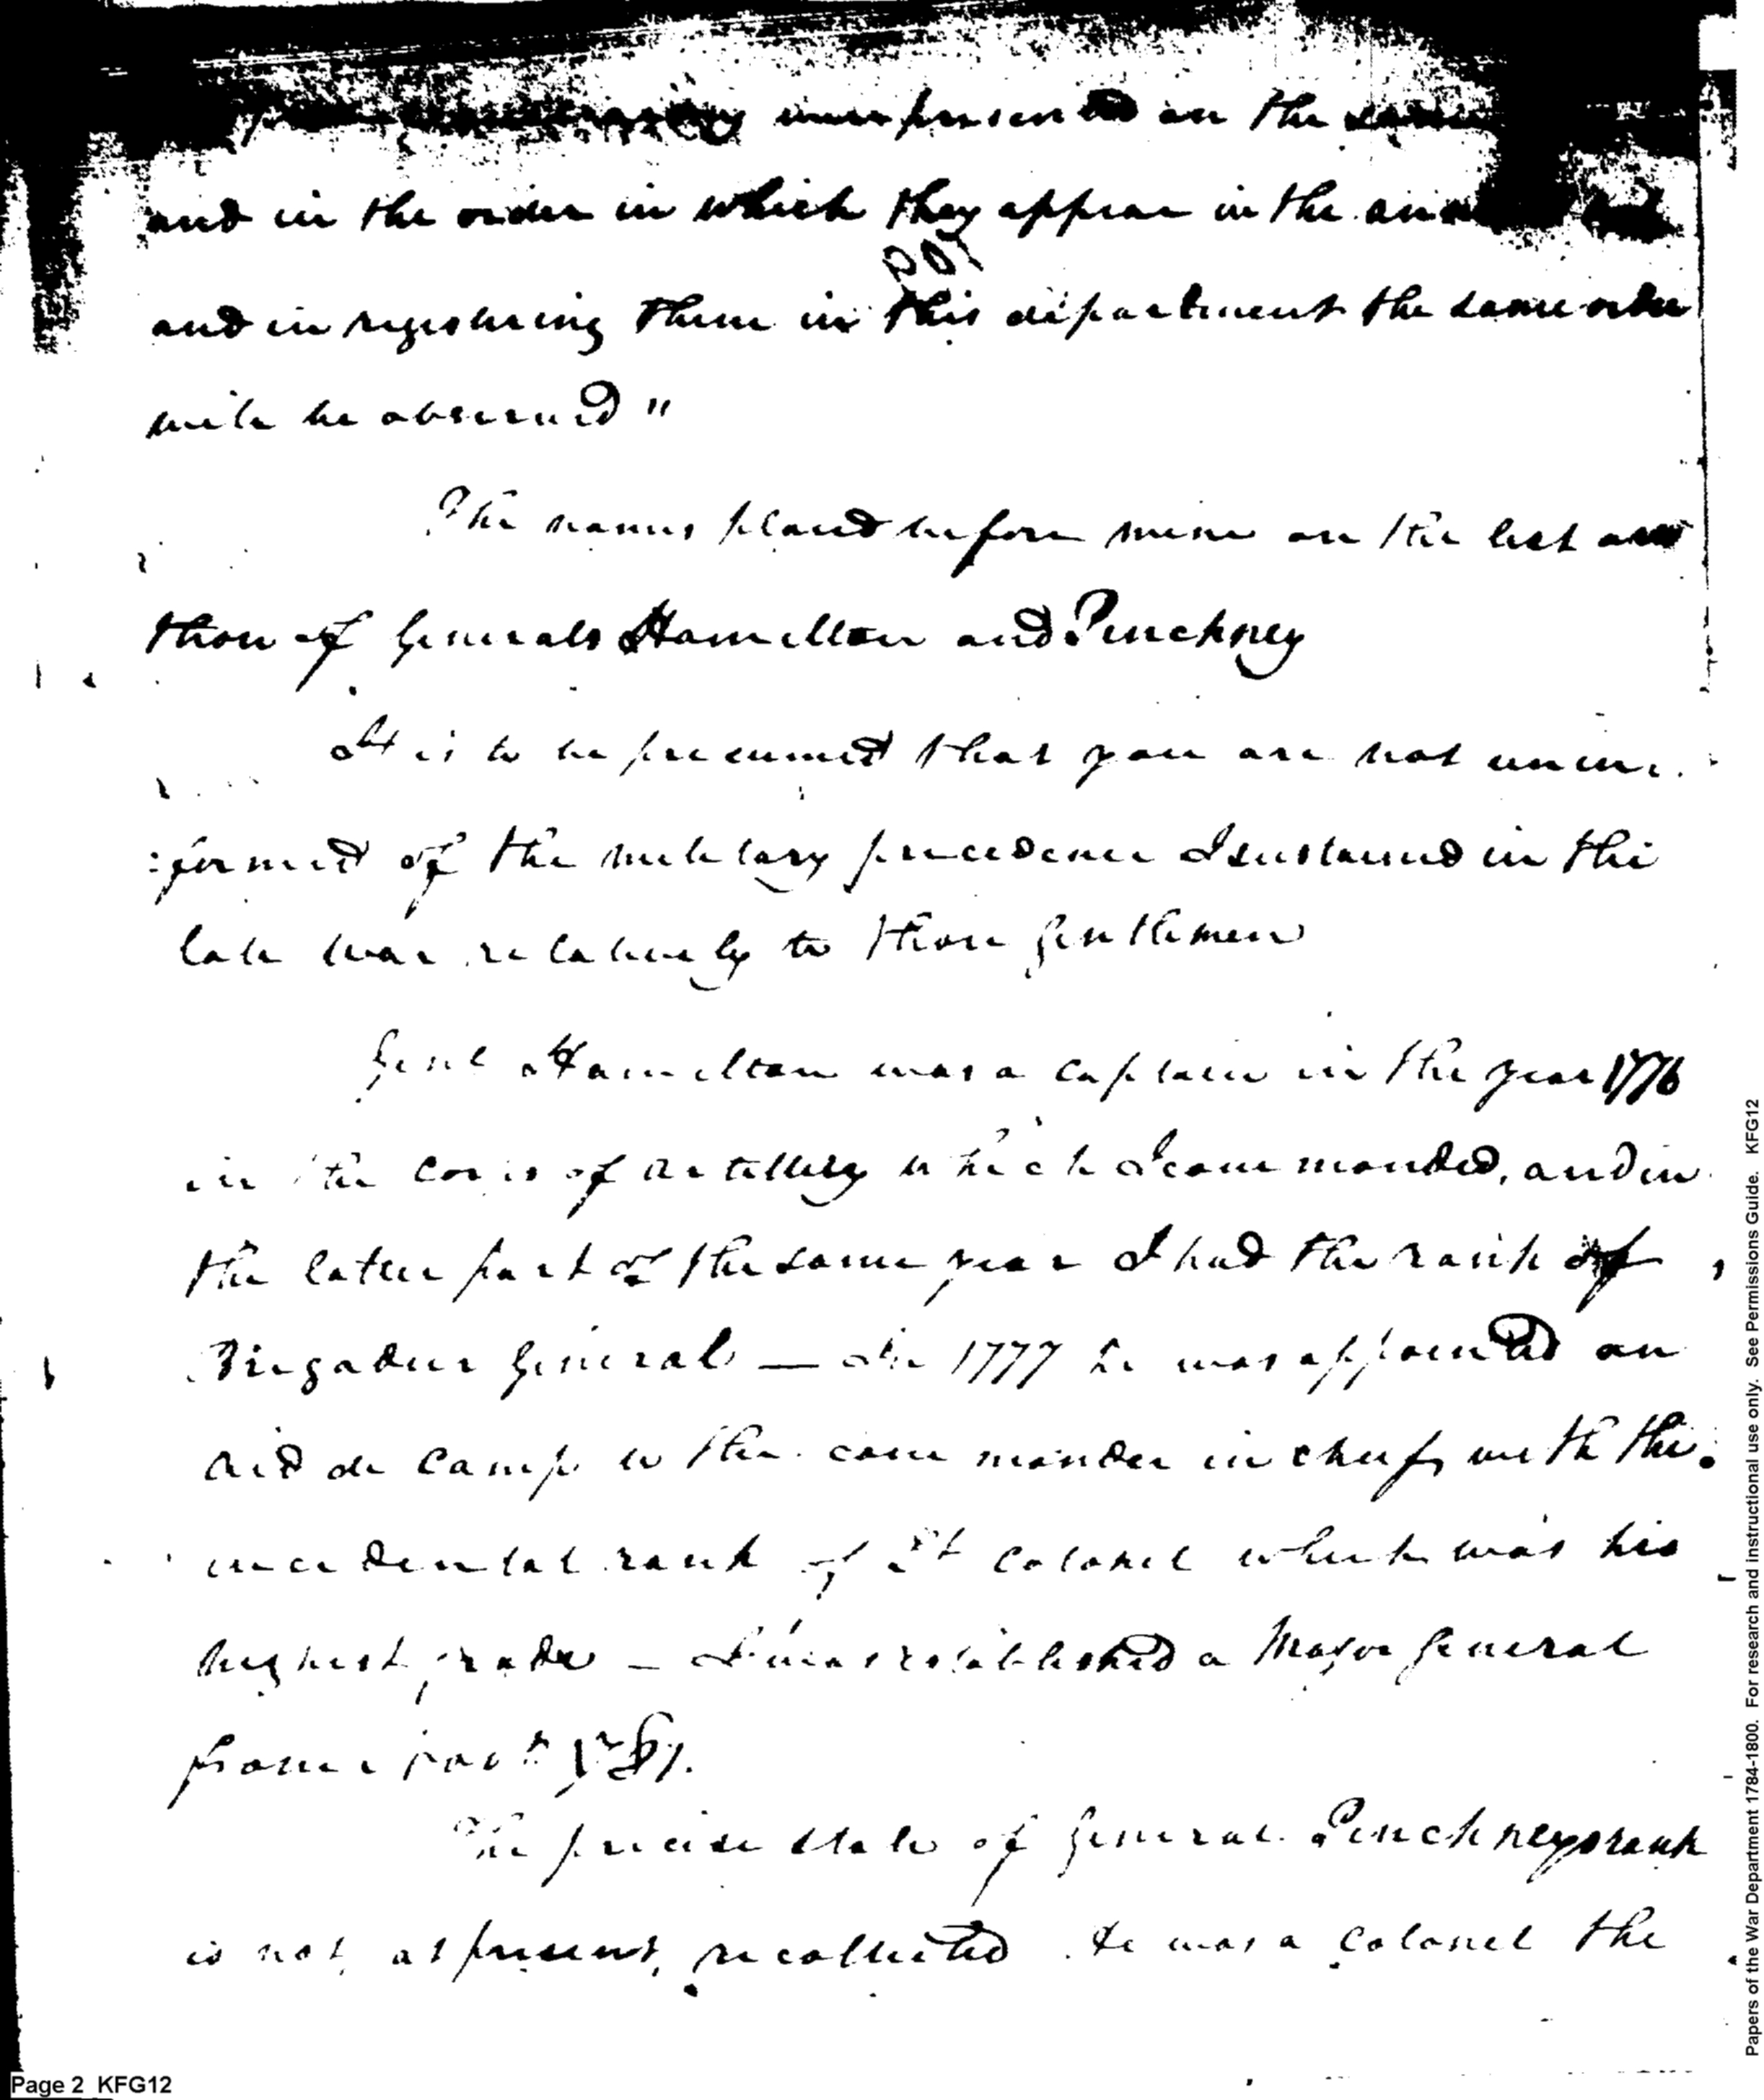 were presented on the same
and in the order in which they appear in the
and in registering them in this department the same order
will be observed"
The names placed before mine on the list are
those of Generals Hamilton and Pinckney
It is to be presumed that you are not unin
:formed of the military precedence I sustained in the
late war relatively to those Gentlemen
Genl Hamilton was a captain in the year 1776
in the corps of artillery which I commanded, and in
the latter part of the same year I had the rank of
Brigadier General — In 1777 he was appointed an
aid de camp to the commander in chief, with the
incidental rank of Lt colonel which was his
highest grade — I was established a Major General
from
The precise state of General Pinckneys rank
is not, at present, recollected. He was a colonel the
Page 2 KFG12
Papers of the War Department 1784-1800. For research and instructional use only. See Permissions Guide. KFG12